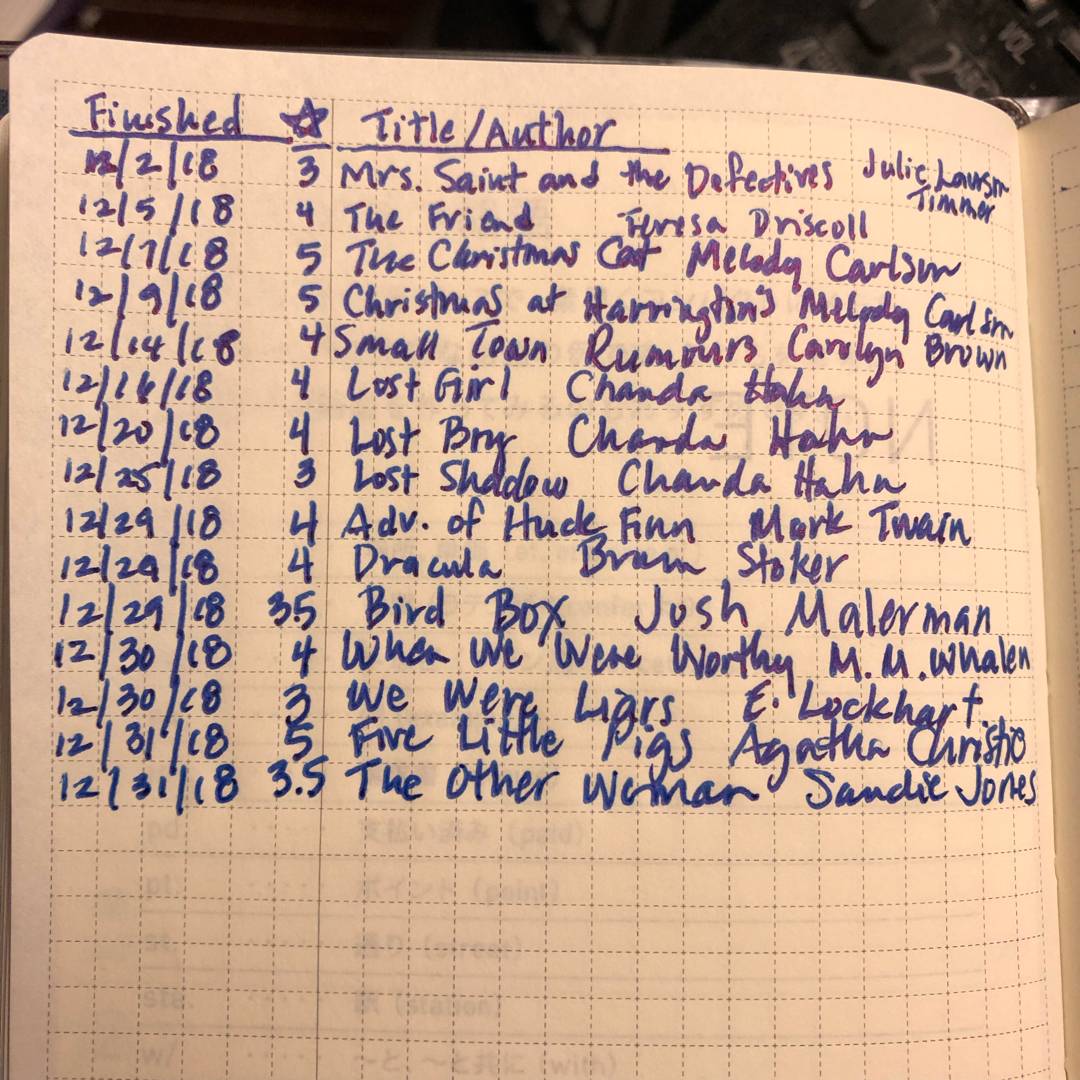 Finished ☆ Title/Author
12/2/18 3 Mrs. Saint and the Defectives Julie Lawson Timmer
12/5/18 4 The Friend Teresa Driscoll
12/7/18 5 The Christmas Cat Melody Carlson
12/9/18 5 Christmas at Harrington's Melody Carlson
12/14/18 4 Small Town Rumours Carolyn Brown
12/16/18 4 Lost Girl Chanda Hahn
12/20/18 4 Lost Boy Chanda Hahn
12/25/18 3 Lost Shadow Chanda Hahn
12/29/18 4 Adv. of Huck Finn Mark Twain
12/29/18 4 Dracula Bram Stoker
12/29/18 3.5 Bird Box Josh Malerman
12/30/18 4 When We Were Worthy M.M. Whalen
12/30/18 3 We Were Liars E. Lockhart
12/31/18 5 Five Little Pigs Agatha Christie
12/31/18 3.5 The Other Woman Sandie Jones